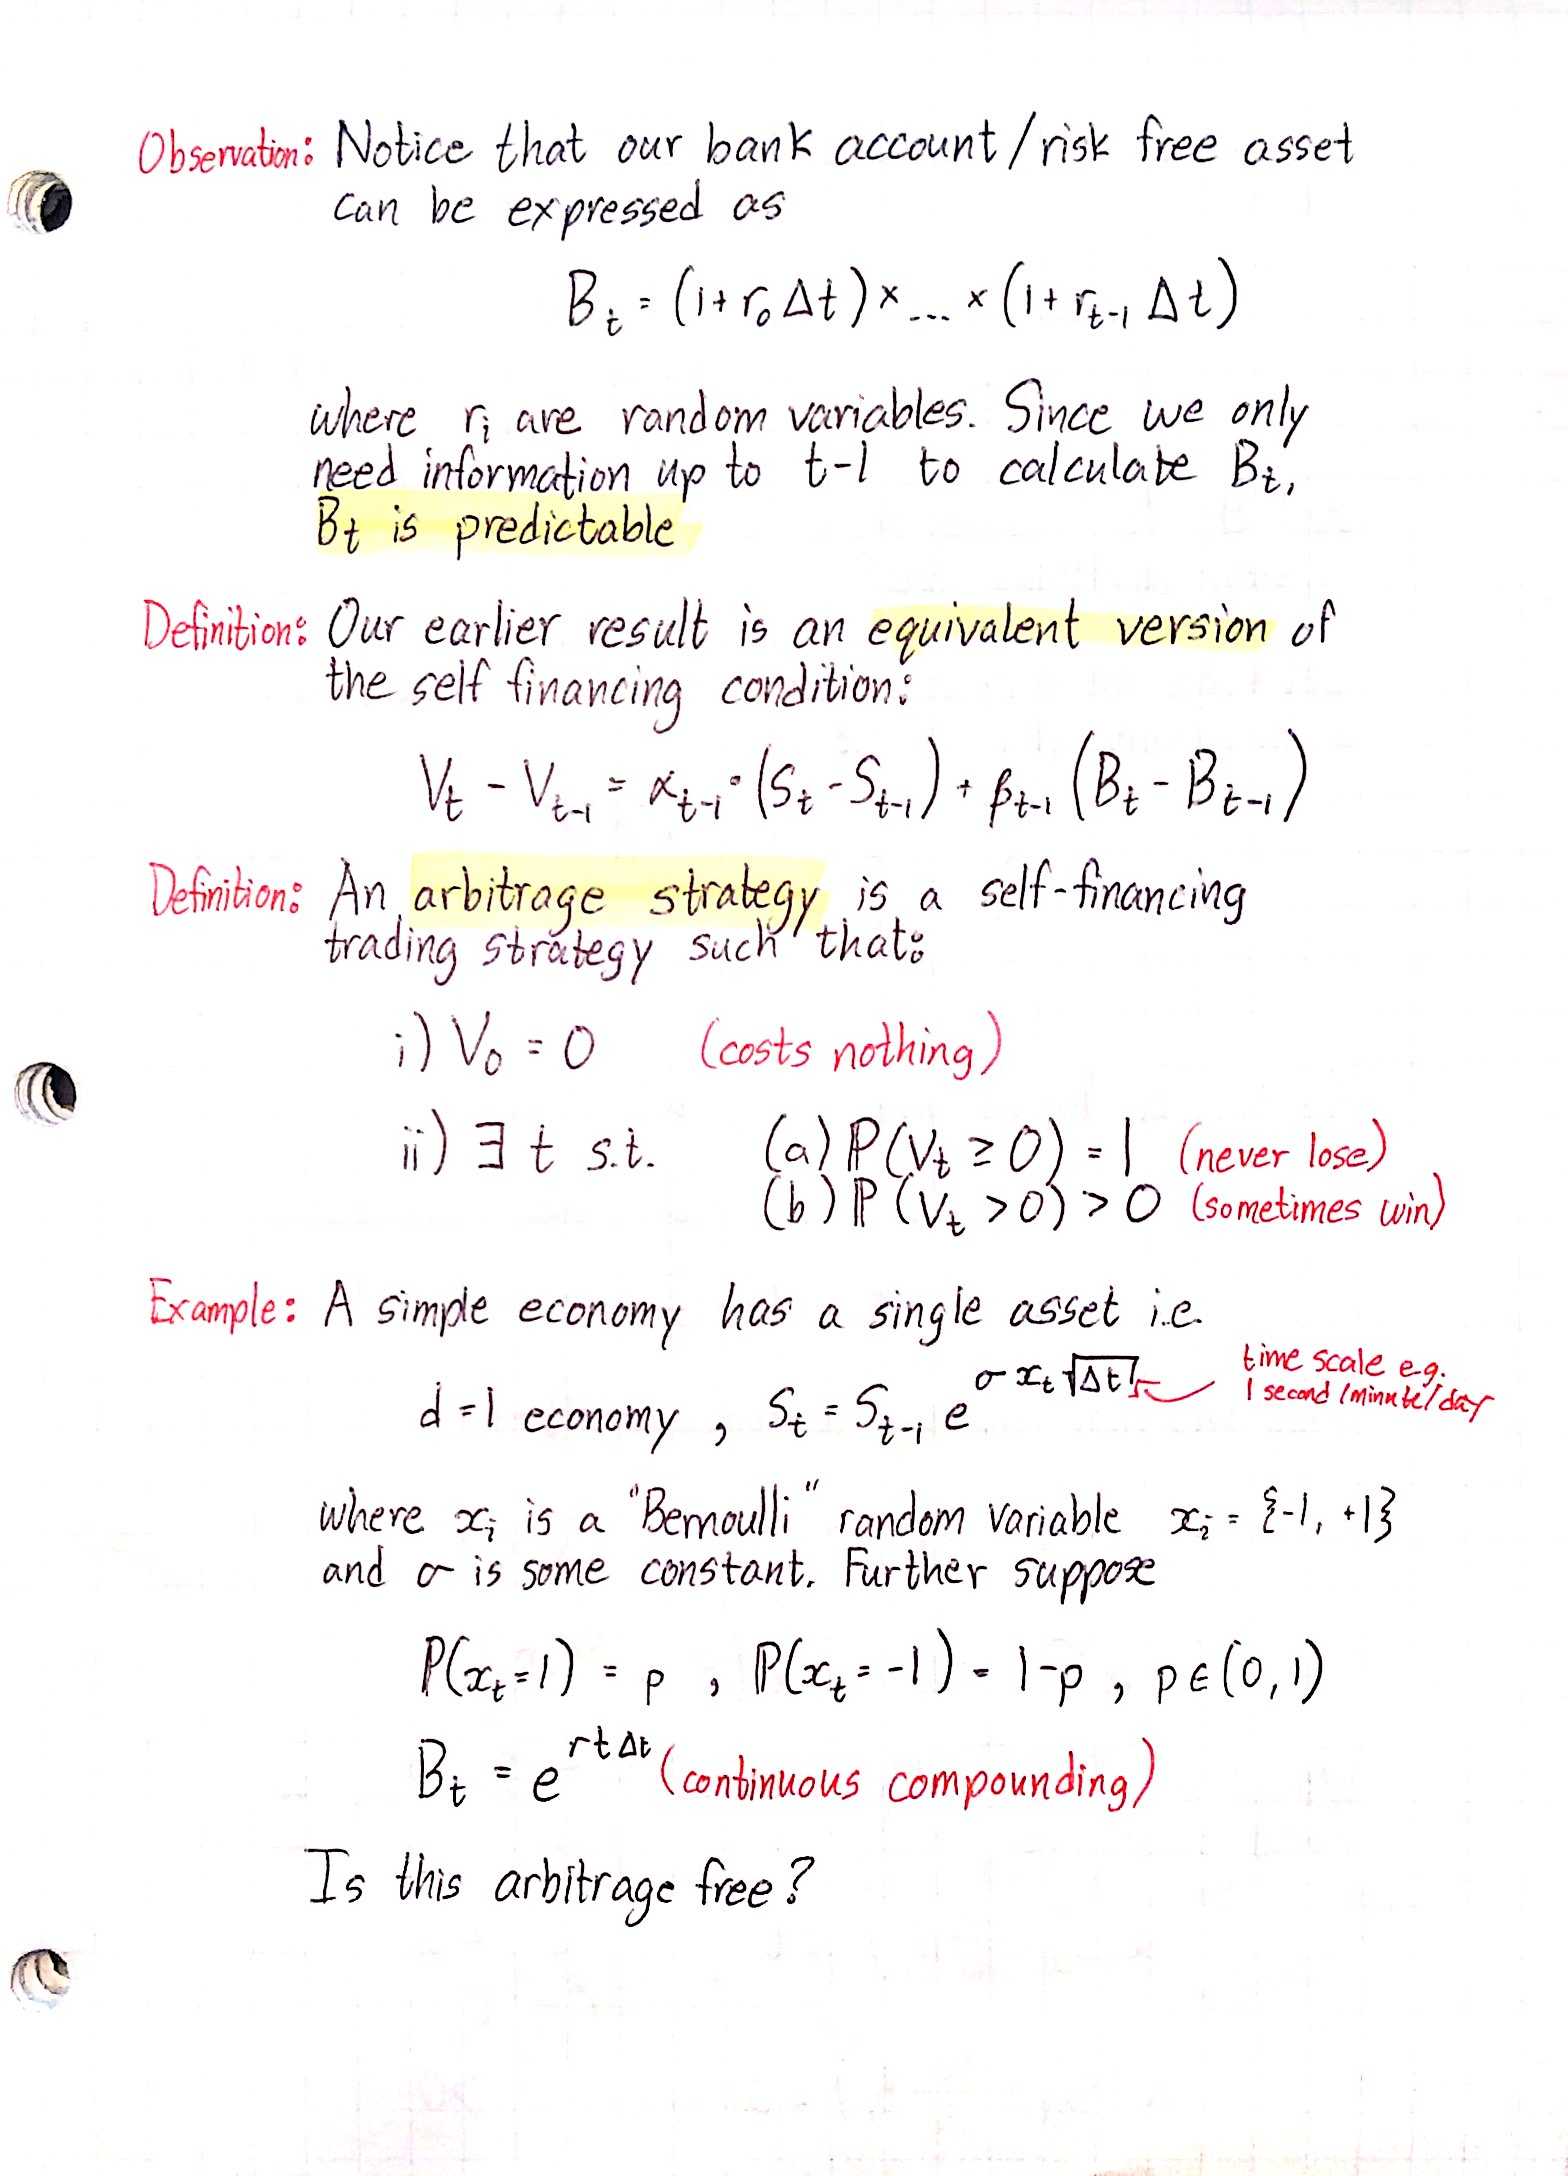 Observation: Notice that our bank account / risk free asset
can be expressed as
B_t = (1 + r_0 Δt) × ... × (1 + r_{t-1} Δt)
where r_i are random variables. Since we only
need information up to t-1 to calculate B_t,
B_t is predictable
Definition: Our earlier result is an equivalent version of
the self financing condition:
V_t - V_{t-1} = α_{t-1} · (S_t - S_{t-1}) + β_{t-1} (B_t - B_{t-1})
Definition: An arbitrage strategy is a self-financing
trading strategy such that:
i) V_0 = 0 (costs nothing)
ii) ∃ t s.t. (a) ℙ(V_t ≥ 0) = 1 (never lose)
(b) ℙ(V_t > 0) > 0 (sometimes win)
Example: A simple economy has a single asset i.e.
d = 1 economy, S_t = S_{t-1} e^{σ x_t √Δt} time scale e.g.
1 second/minute/day
where x_i is a "Bernoulli" random variable x_i = {-1, +1}
and σ is some constant. Further suppose
ℙ(x_t = 1) = p, ℙ(x_t = -1) = 1-p, p ∈ (0, 1)
B_t = e^{rtΔt} (continuous compounding)
Is this arbitrage free?